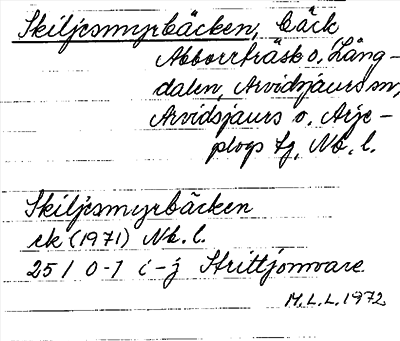 Skiljesmyrbäcken, bäck
Abborrträsk o. Lång-
dalen, Arvidsjaurs sn,
Arvidsjaurs o. Arje-
plogs tg, Nb. l.
Skiljesmyrbäcken
ek (1971) Nb. l.
25 I 0-1 i-j Strittjomvare
M.L.L. 1972